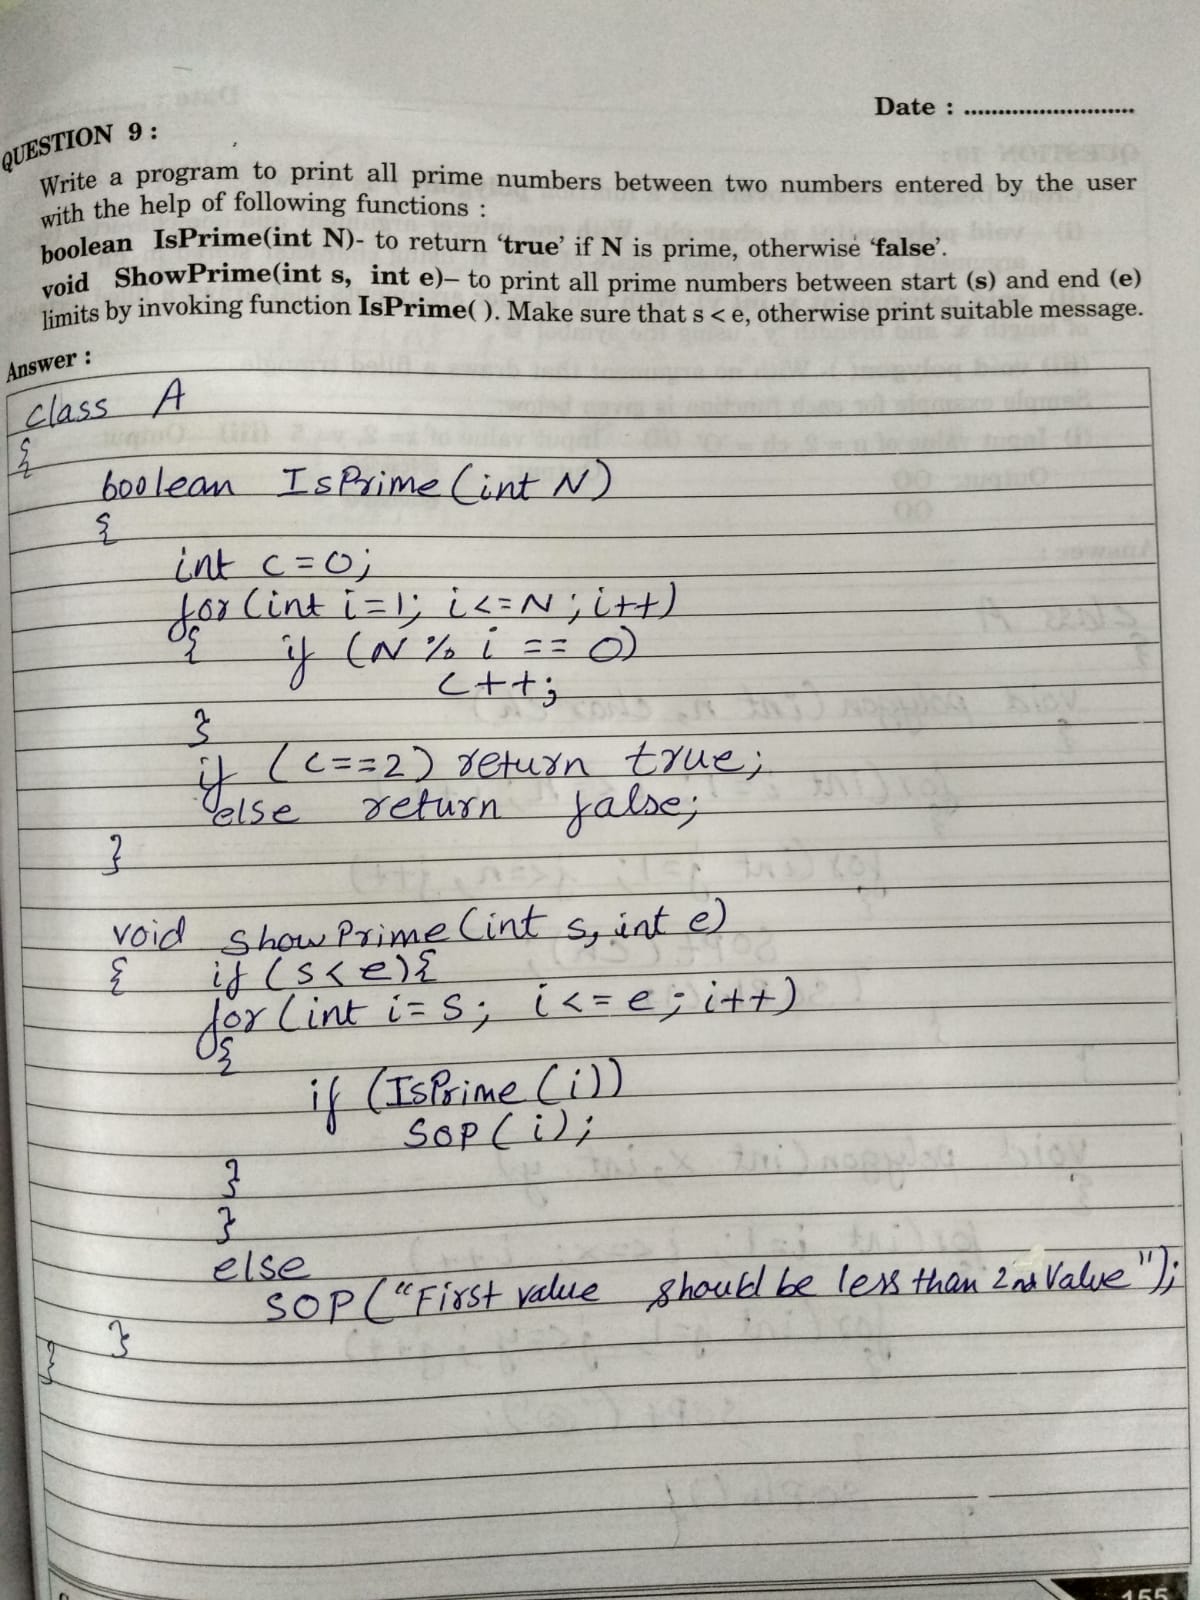 Date : ..........................
QUESTION 9 :
Write a program to print all prime numbers between two numbers entered by the user
with the help of following functions :
boolean IsPrime(int N)- to return ‘true’ if N is prime, otherwise ‘false’.
void ShowPrime(int s, int e)– to print all prime numbers between start (s) and end (e)
limits by invoking function IsPrime( ). Make sure that s < e, otherwise print suitable message.
Answer :
class A
{
boolean IsPrime(int N)
{
int c=0;
for(int i=1; i<=N; i++)
{ if (N % i == 0)
c++;
}
if (c==2) return true;
else return false;
}
void showPrime(int s, int e)
{ if (s<e){
for(int i=s; i<=e; i++)
{
if (IsPrime(i))
SOP(i);
}
}
else
SOP("First value should be less than 2nd Value");
}
}
155